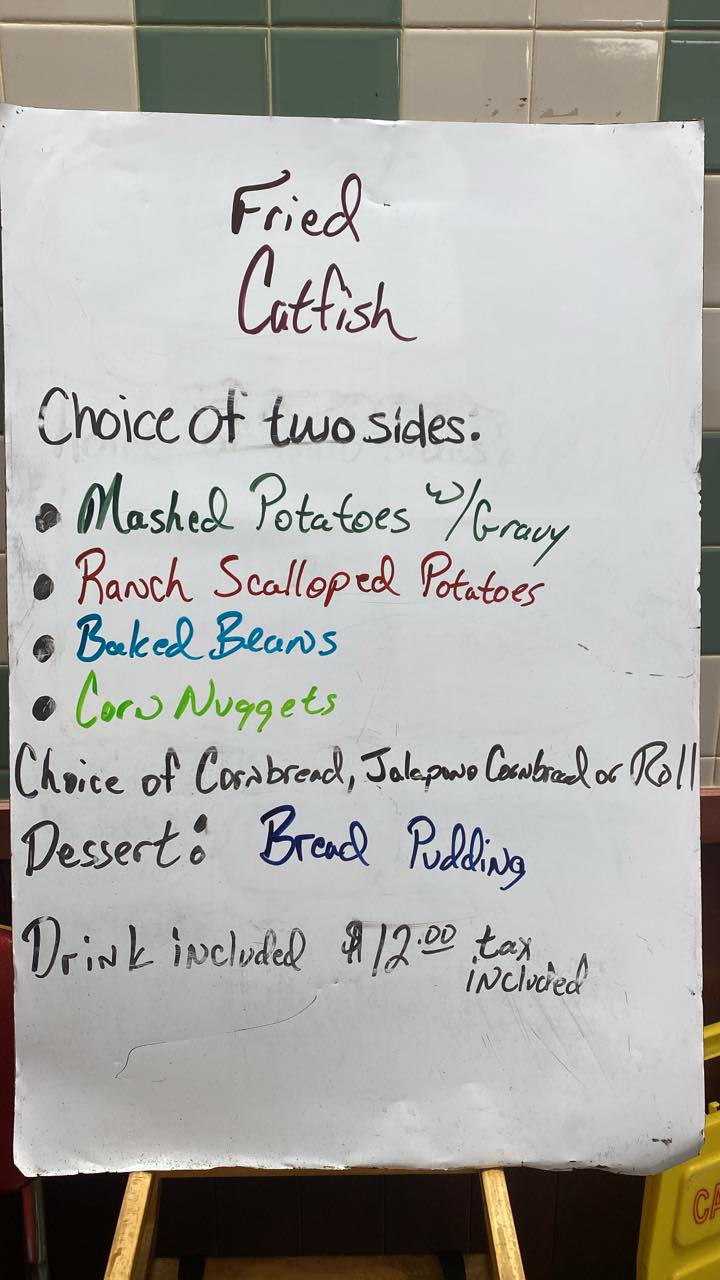 Fried
Catfish
Choice of two sides:
• Mashed Potatoes w/Gravy
• Ranch Scalloped Potatoes
• Baked Beans
• Corn Nuggets
Choice of Cornbread, Jalapeno Cornbread or Roll
Dessert: Bread Pudding
Drink included $12.00 tax
included
CA